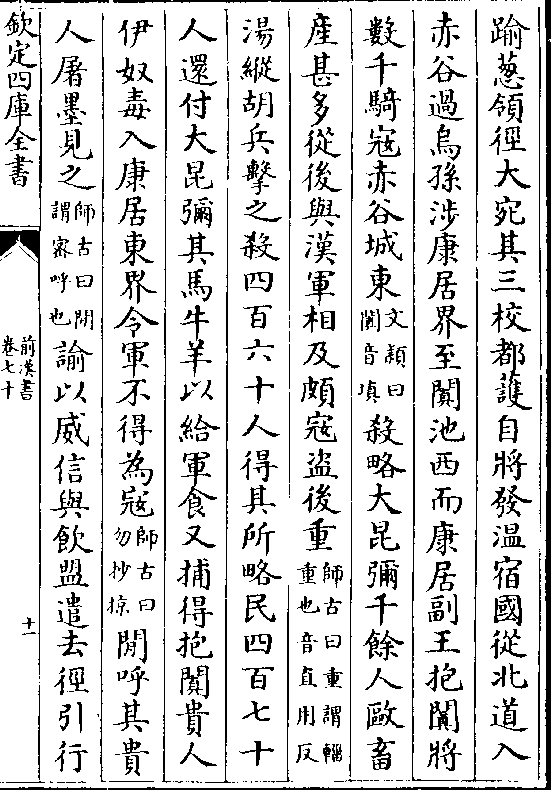 踰葱領徑大宛其三校都䕶自將發温宿國從北道入
赤谷過烏孫涉康居界至闐池西而康居副王抱闐將
數千騎寇赤谷城東文穎曰闐音填殺略大昆彌千餘人歐畜
產甚多從後與漢軍相及頗寇盜後重師古曰重謂輜重也音直用反
湯縱胡兵擊之殺四百六十人得其所略民四百七十
人還付大昆彌其馬牛羊以給軍食又捕得抱闐貴人
伊奴毒入康居東界令軍不得為寇師古曰勿抄掠間呼其貴
人屠墨見之師古曰間謂密呼也諭以威信與飲盟遣去徑引行
欽定四庫全書
前漢書
卷七十
十一